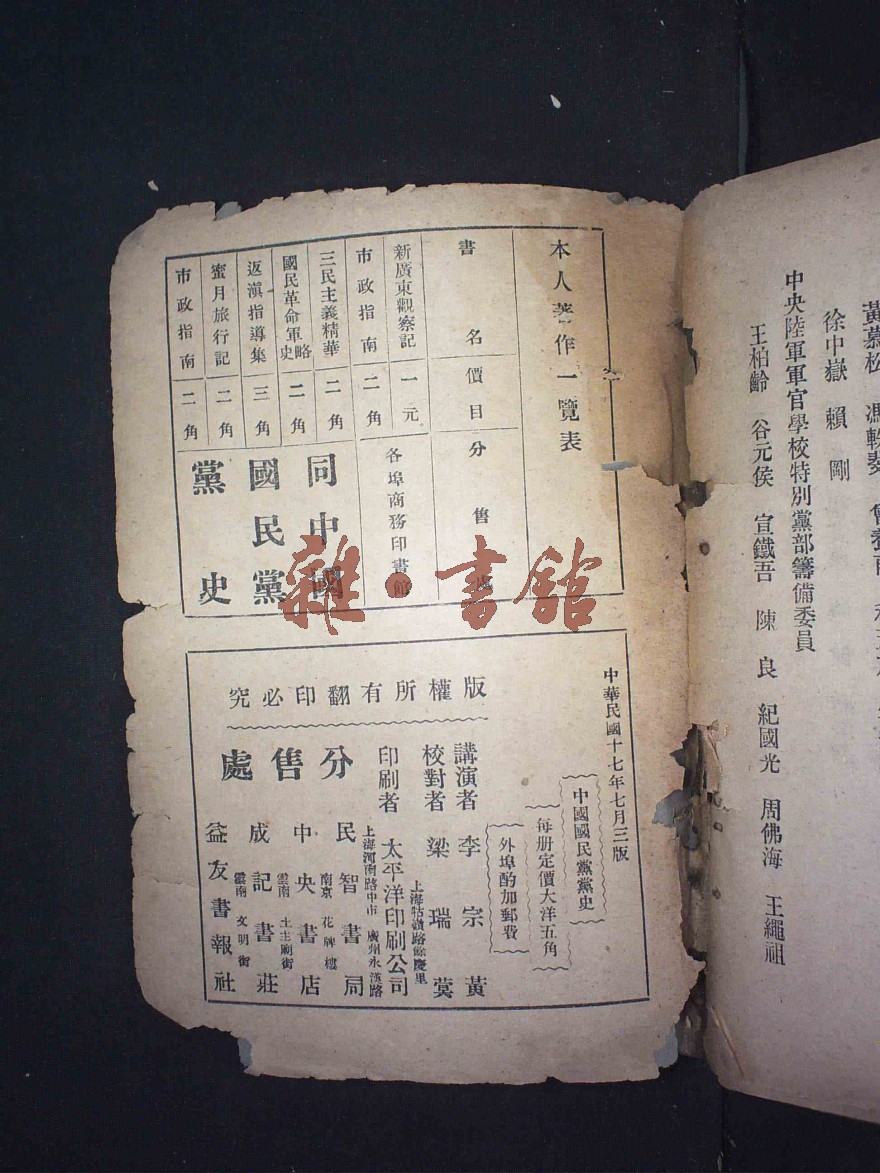 徐中嶽　賴　剛
中央陸軍軍官學校特別黨部籌備委員
王柏齡　谷元侯　宣鐵吾　陳　良　紀國光　周佛海　王繩祖
本人著作一覽表
書名　價目　分售處
新廣東觀察記　一元　各埠商務印書館
市政指南　二角
三民主義精華　二角　同中國國民黨黨史
國民革命軍略史　二角
返滇指導集　三角
蜜月旅行記　二角
市政指南　二角
中華民國十七年七月三版
中國國民黨黨史
每册定價大洋五角
外埠酌加郵費
版權所有翻印必究
講演者　李宗黃
校對者　梁瑞
上海牯嶺路餘慶里
印刷者　太平洋印刷公司
分售處
上海河南路中市　廣州永漢路
民智書局
南京　花牌樓
中央書店
雲南　土主廟街
成記書莊
雲南　文明街
益友書報社
雜·書館